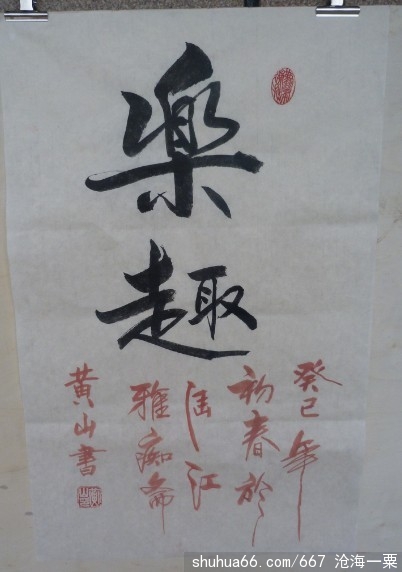 樂趣
癸巳年
初春於
江
雅痴斋
黄山書
shuhua66.com/667 沧海一粟